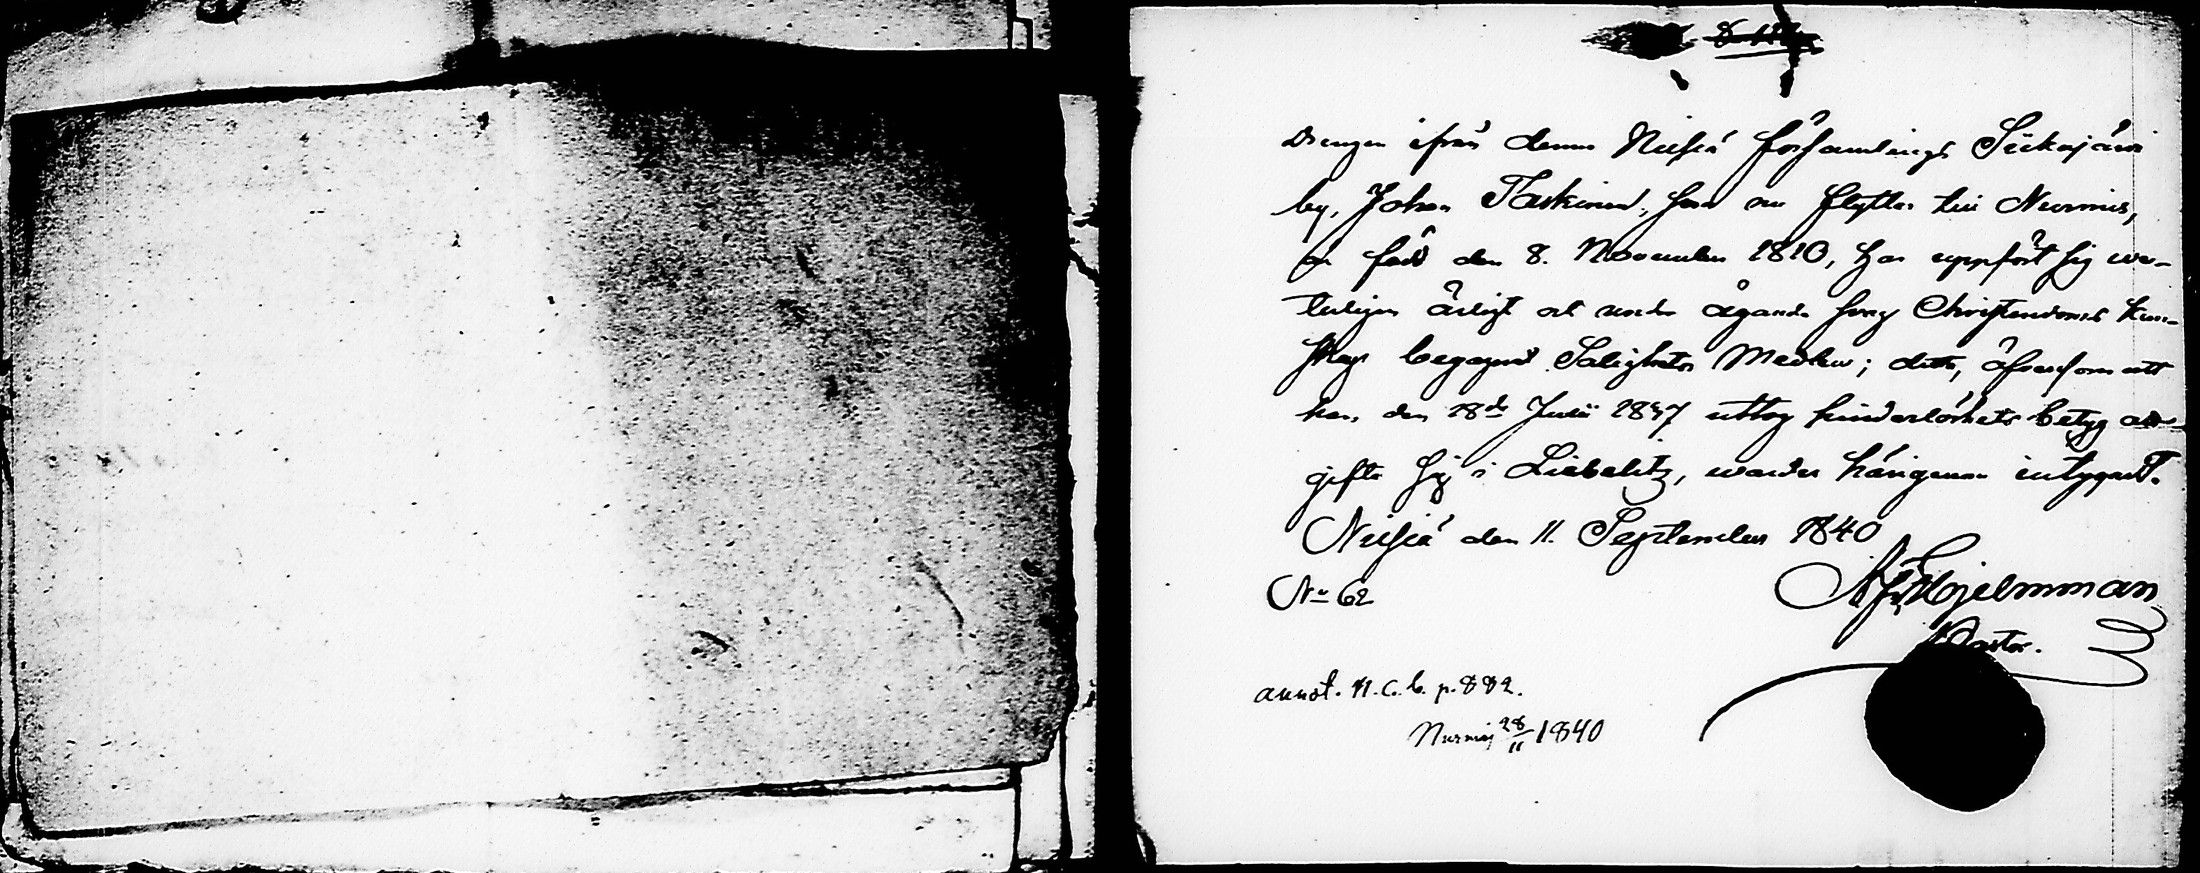 Drengen ifrån denna Nilsiä församlings Siikajärvi
by, Johan Taskinen, som nu flyttar till Nurmis,
är född den 8. November 1810, har uppfört sig we-
terligen ärligt och under ägande svag Christendoms kun-
skap begagnat Salighetens Medlen; detta, äfvensom att
han den 18de Julii 1837 uttog hinderlöshets betyg att
gifta sig i Liebelitz, warder härigenom intygadt.
Nilsiä den 11. September 1840
No 62
Pastor.
annot. N.C.b. p. 882.
Nurmis 28/11 1840